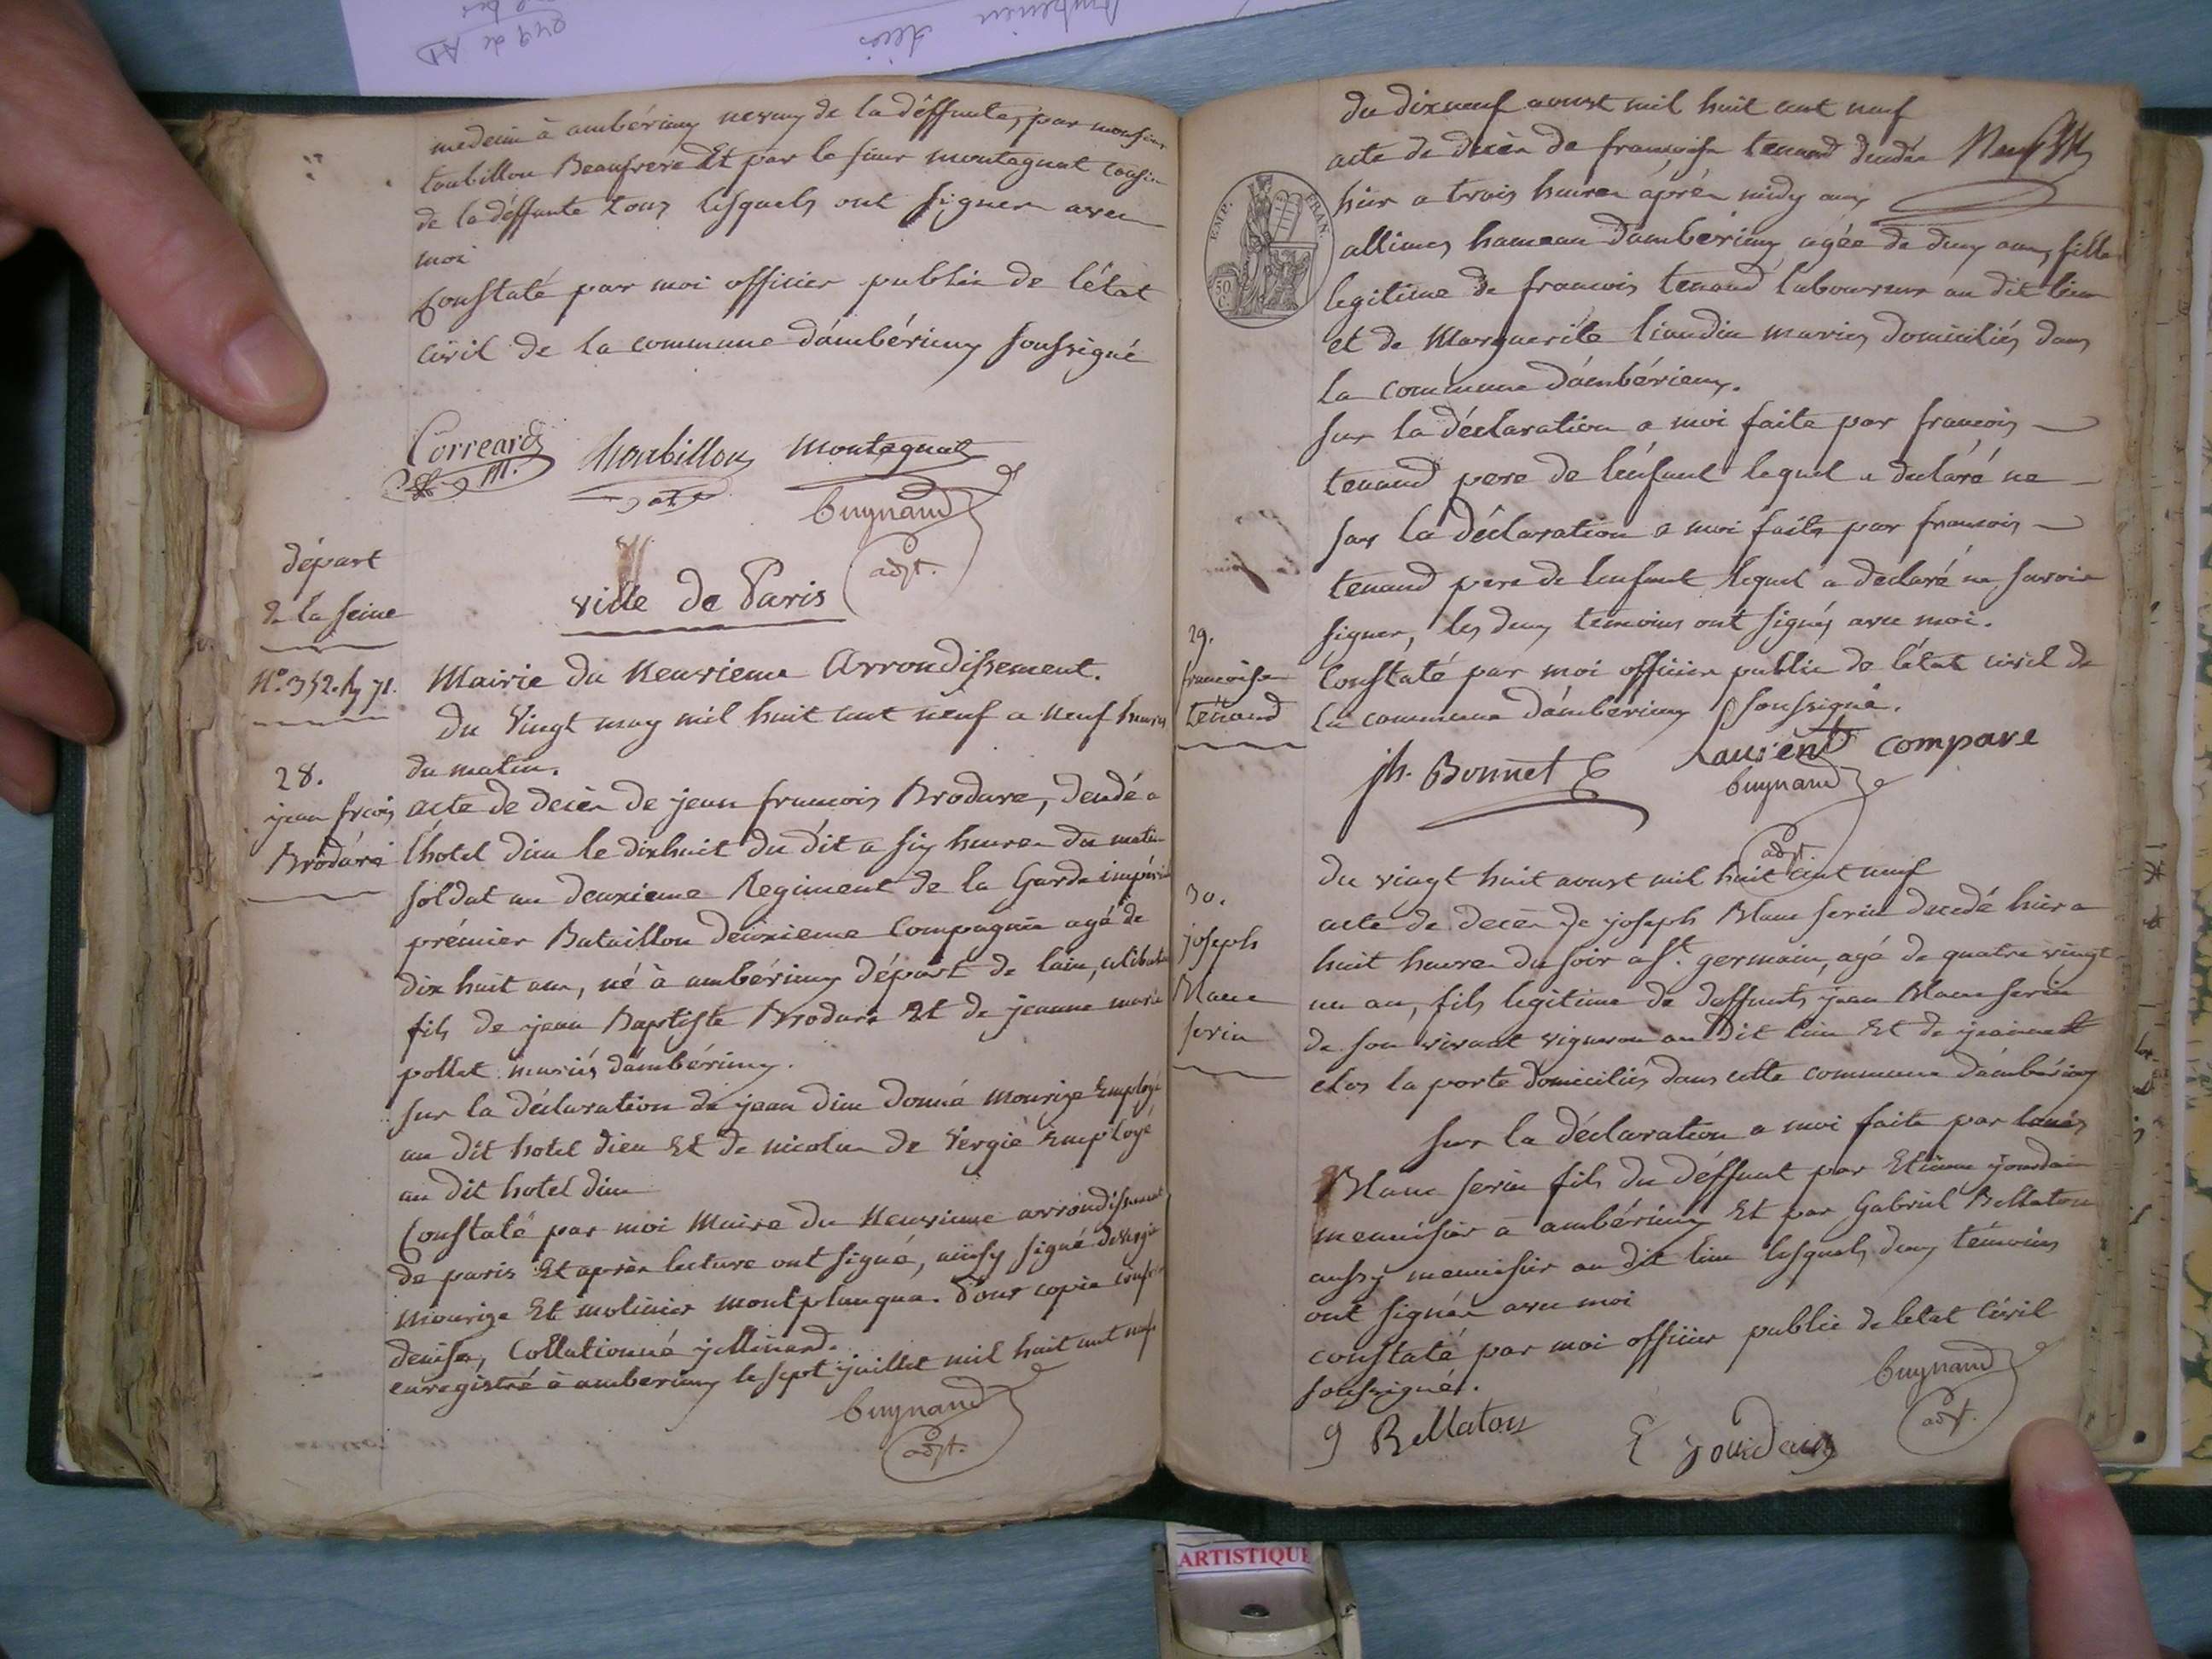 medecin à ambérieux neveu de la déffunte, par monsieur
toubillon Beaufrere Et par le sieur montagnat cousin
de la déffunte tous lesquels ont signer avec
moi
Constaté par moi officier public de l'état
civil de la commune d'ambérieux soussigné
Correard
D. M.
montagnat
buynand
adjt.
départ
de la seine
ville de Paris
N°. 352. fo 71.
Mairie du Neuvieme Arrondissement.
du Vingt may mil huit cent neuf a neuf heures
du matin.
28.
jean frçois
Brodure
acte de decès de jean francois Brodure, decedé a
l'hotel dieu le dixhuit du dit a six heures du matin
soldat au deuxieme Regiment de la Garde impériale
prémier Bataillon deuxieme Compagnie agé de
dix huit ans, né à ambérieux départ de lain, celibataire
fils de jean Baptiste Brodure Et de jeanne marie
pollet mariés d'ambérieux.
sur la déclaration de jean dieu donné mourize Employé
au dit hotel dieu Et de nicolas de Vergie Employé
au dit hotel dieu
Constaté par moi Maire du Neuvieme arrondissement
de paris Et après lecture ont signé, ainsy signé devergie
mourize Et molinier montplanqua. Pour copie conforme
collationné
enregistré à amberieux le sept juillet mil huit cent neuf
buynand
adjt.
du dixneuf aoust mil huit cent neuf
acte de decès de françoise tenand decedée
hier a trois heures après midy aux
EMP. FRAN.
50 C.
allimes hameau d'ambérieux agée de deux ans, fille
legitime de francois tenand laboureur au dit lieu
et de Marguerite liaudin mariés domiciliés dans
la commune d'ambérieux.
sur la déclaration a moi faite par francois
tenand pere de l'enfant lequel a declaré ne
sur la déclaration a moi faite par francois
tenand pere de l'enfant lequel a déclaré ne savoir
signer, les deux temoins ont signés avec moi.
29.
francoise
tenand
Constaté par moi officier public de l'état civil de
la commune d'ambérieux soussigné.
jh. Bonnet
Laurent compare
buynand
adjt
du vingt huit aoust mil huit cent neuf
30.
joseph
Blanc
serin
acte de decès de joseph Blanc serin decedé hier a
huit heures du soir a St. germain, agé de quatre vingt
un an, fils legitime de deffunts jean Blanc serin
de son vivant vigneron au dit lieu Et de
clos la porte domiciliés dans cette commune d'ambérieux
sur la déclaration a moi faite par louis
Blanc serin fils du déffunt par Etienne jourdain
menuisier a ambérieux Et par Gabriel Bellaton
aussy menuisier au dit lieu lesquels deux témoins
ont signés avec moi
constaté par moi officier public de l'etat Civil
soussigné.
buynand
adjt.
g Bellaton
E jourdain
ARTISTIQUE